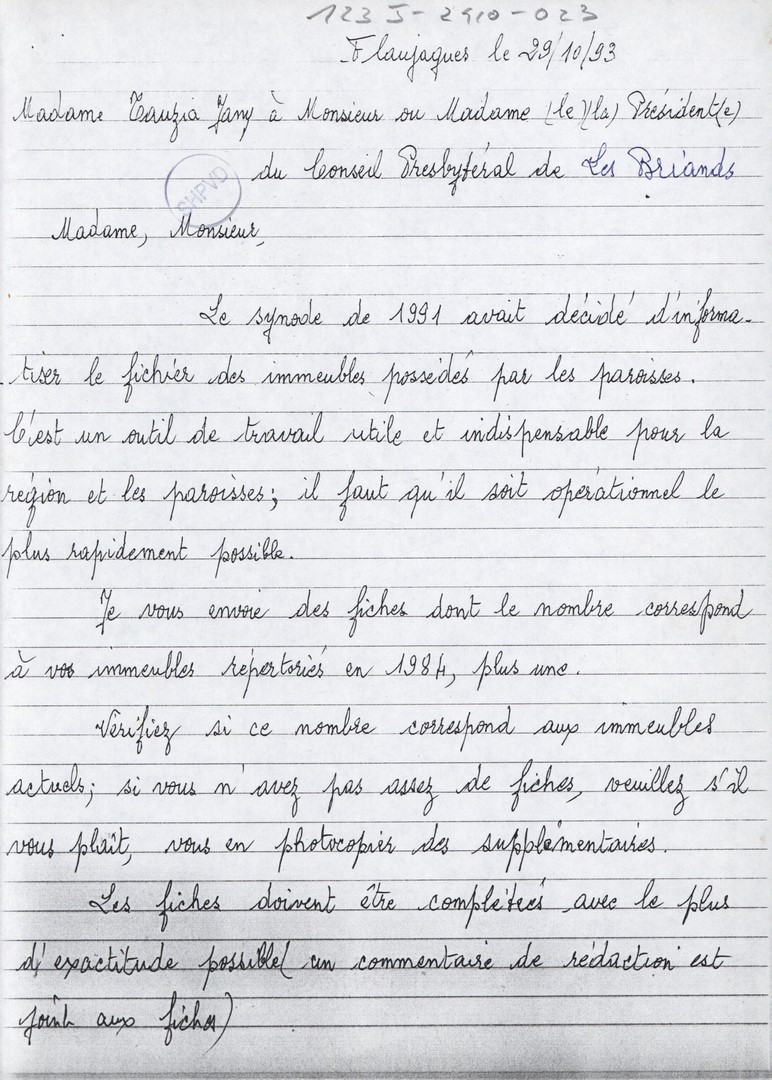 123 J-2910-023
Flaujagues le 29/10/93
Madame Tauzia Jany à Monsieur ou Madame (le)(la) Président(e)
du Conseil Presbytéral de Les Briands
SHPVD
Madame, Monsieur,
Le synode de 1991 avait décidé d'informa-
tiser le fichier des immeubles possédés par les paroisses.
C'est un outil de travail utile et indispensable pour la
région et les paroisses; il faut qu'il soit opérationnel le
plus rapidement possible.
Je vous envoie des fiches dont le nombre correspond
à vos immeubles répertoriés en 1984, plus une.
Vérifiez si ce nombre correspond aux immeubles
actuels; si vous n'avez pas assez de fiches, veuillez s'il
vous plaît, vous en photocopier des supplémentaires.
Les fiches doivent être complétées avec le plus
d'exactitude possible (un commentaire de rédaction est
joint aux fiches)